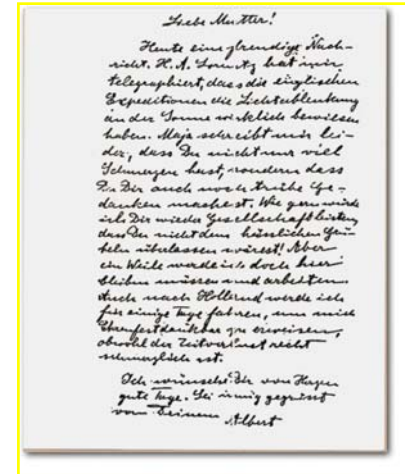 Liebe Mutter!
Heute eine freudige Nach-
richt. H. A. Lorentz hat mir
telegraphiert, dass die englischen
Expeditionen die Lichtablenkung
an der Sonne wirklich bewiesen
haben. Maja schreibt mir lei-
der, dass Du nicht nur viel
Schmerzen hast, sondern dass
Du Dir auch noch trübe Ge-
danken machst. Wie gern würde
ich Dir wieder Gesellschaft leisten,
dass Du nicht dem hässlichen Grü-
beln überlassen wärest! Aber
ein Weile werde ich doch hier
bleiben müssen und arbeiten.
Auch nach Holland werde ich
für einige Tage fahren, um mich
Ehrenfest dankbar zu erweisen,
obwohl der Zeitverlust recht
schmerzlich ist.
Ich wünsche Dir von Herzen
gute Tage. Sei innig gegrüsst
von Deinem
Albert